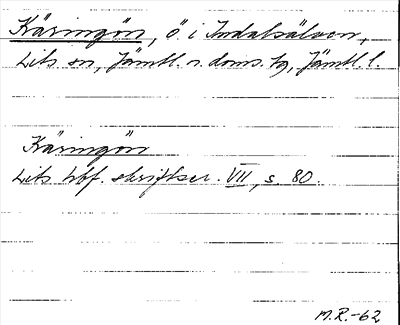 Käringön, ö. i Indalsälven,
Lits sn, Jämtl. n. doms. tg, Jämtl. l.
Käringön
Lits hbf. skriftser. VII, s. 80.
M.R.-62